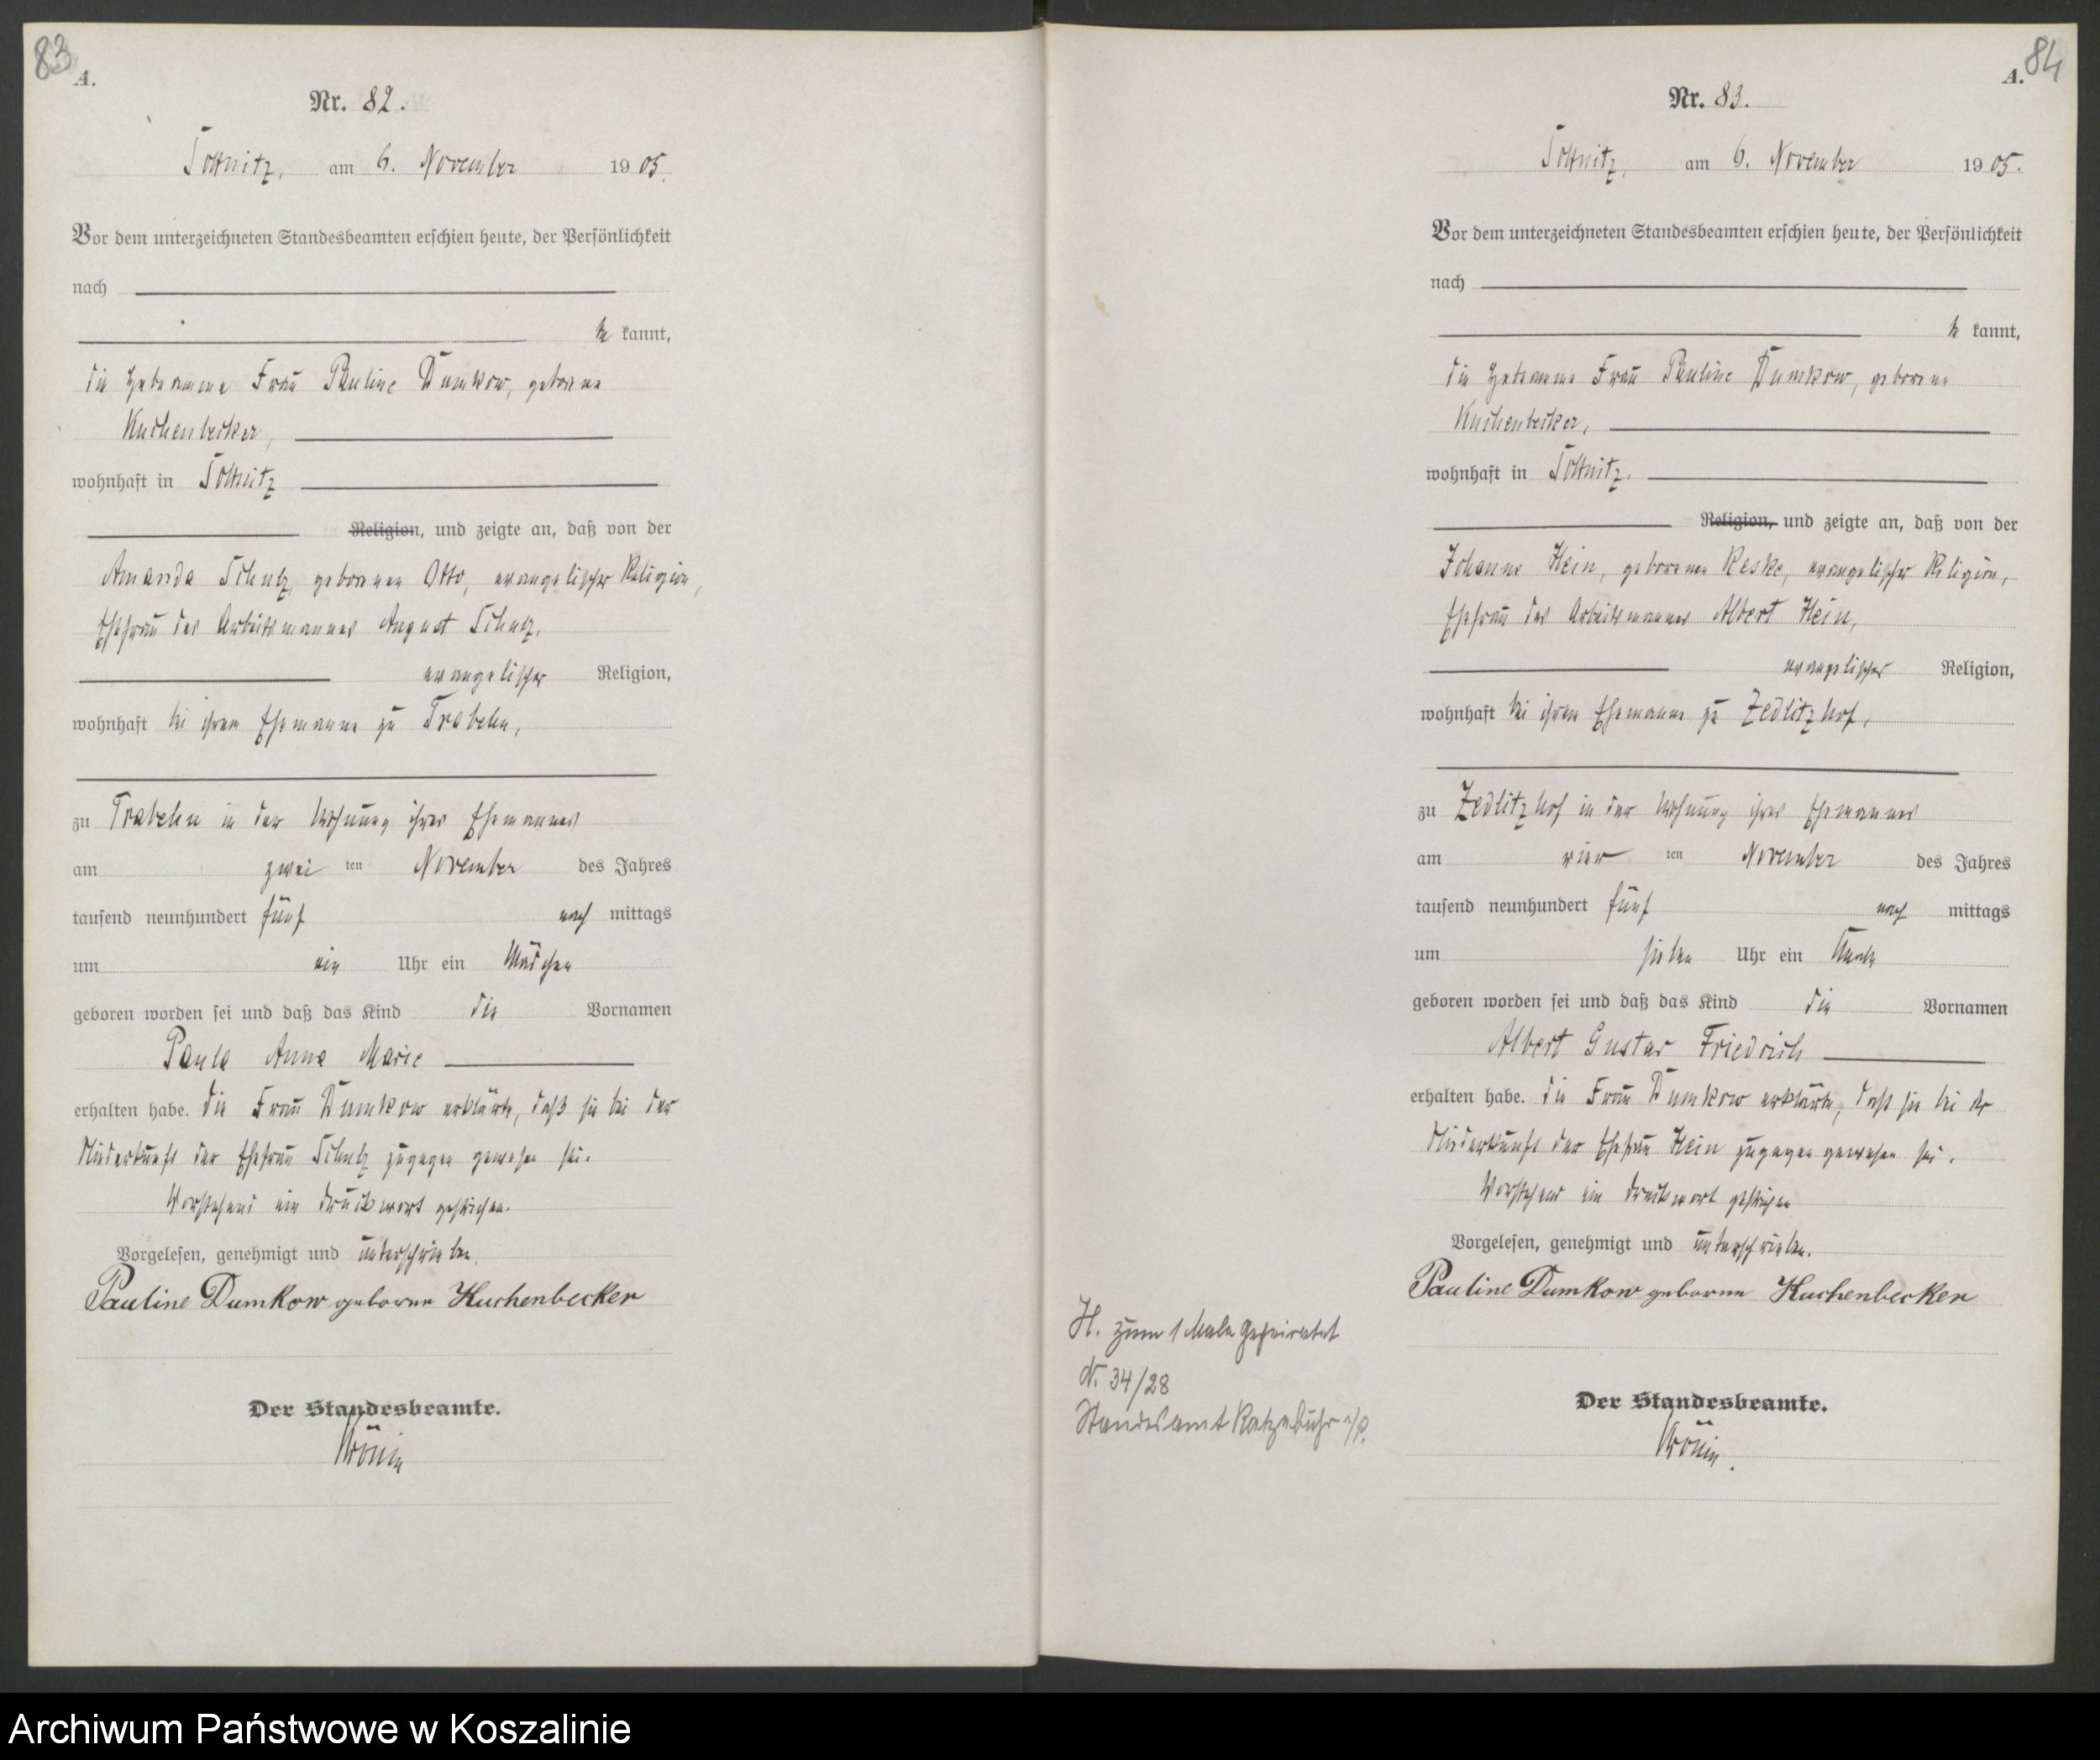 83
A.
Nr. 82.
am 6. November 1905.
Vor dem unterzeichneten Standesbeamten erschien heute, der Persönlichkeit
nach
be kannt,
die Hebamme Frau Pauline Dumkow, geborene
Kuchenbecker,
wohnhaft in
Religion, und zeigte an, daß von der
Amanda Schulz, geborenen Otto, evangelischer Religion,
Ehefrau des Arbeitsmannes August Schulz,
evangelischer Religion,
wohnhaft bei ihrem Ehemanne zu Trabehn,
zu Trabehn in der Wohnung ihres Ehemannes
am zwei ten November des Jahres
tausend neunhundert fünf nach mittags
um ein Uhr ein Mädchen
geboren worden sei und daß das Kind die Vornamen
Paula Anna Marie
erhalten habe. Die Frau Dumkow erklärte, daß sie bei der
Niederkunft der Ehefrau Schulz zugegen gewesen sei.
Vorstehend ein Druckwort gestrichen.
Vorgelesen, genehmigt und unterschrieben.
Pauline Dumkow geborene Kuchenbecker
Der Standesbeamte.
84
A.
Nr. 83.
am 6. November 1905.
Vor dem unterzeichneten Standesbeamten erschien heute, der Persönlichkeit
nach
be kannt,
die Hebamme Frau Pauline Dumkow, geborene
Kuchenbecker,
wohnhaft in
Religion, und zeigte an, daß von der
Johanne Hein, geborenen Reske, evangelischer Religion,
Ehefrau des Arbeitsmannes Albert Hein,
evangelischer Religion,
wohnhaft bei ihrem Ehemanne zu Zedlitzhof,
zu Zedlitzhof in der Wohnung ihres Ehemannes
am vier ten November des Jahres
tausend neunhundert fünf nach mittags
um sieben Uhr ein Knabe
geboren worden sei und daß das Kind die Vornamen
Albert Gustav Friedrich
erhalten habe. Die Frau Dumkow erklärte, daß sie bei der
Niederkunft der Ehefrau Hein zugegen gewesen sei.
Vorstehend ein Druckwort gestrichen
Vorgelesen, genehmigt und unterschrieben.
Pauline Dumkow geborene Kuchenbecker
Der Standesbeamte.
H. zum 1 Male geheiratet
N. 34/28
Standesamt Ratzebuhr i/P.
Archiwum Państwowe w Koszalinie